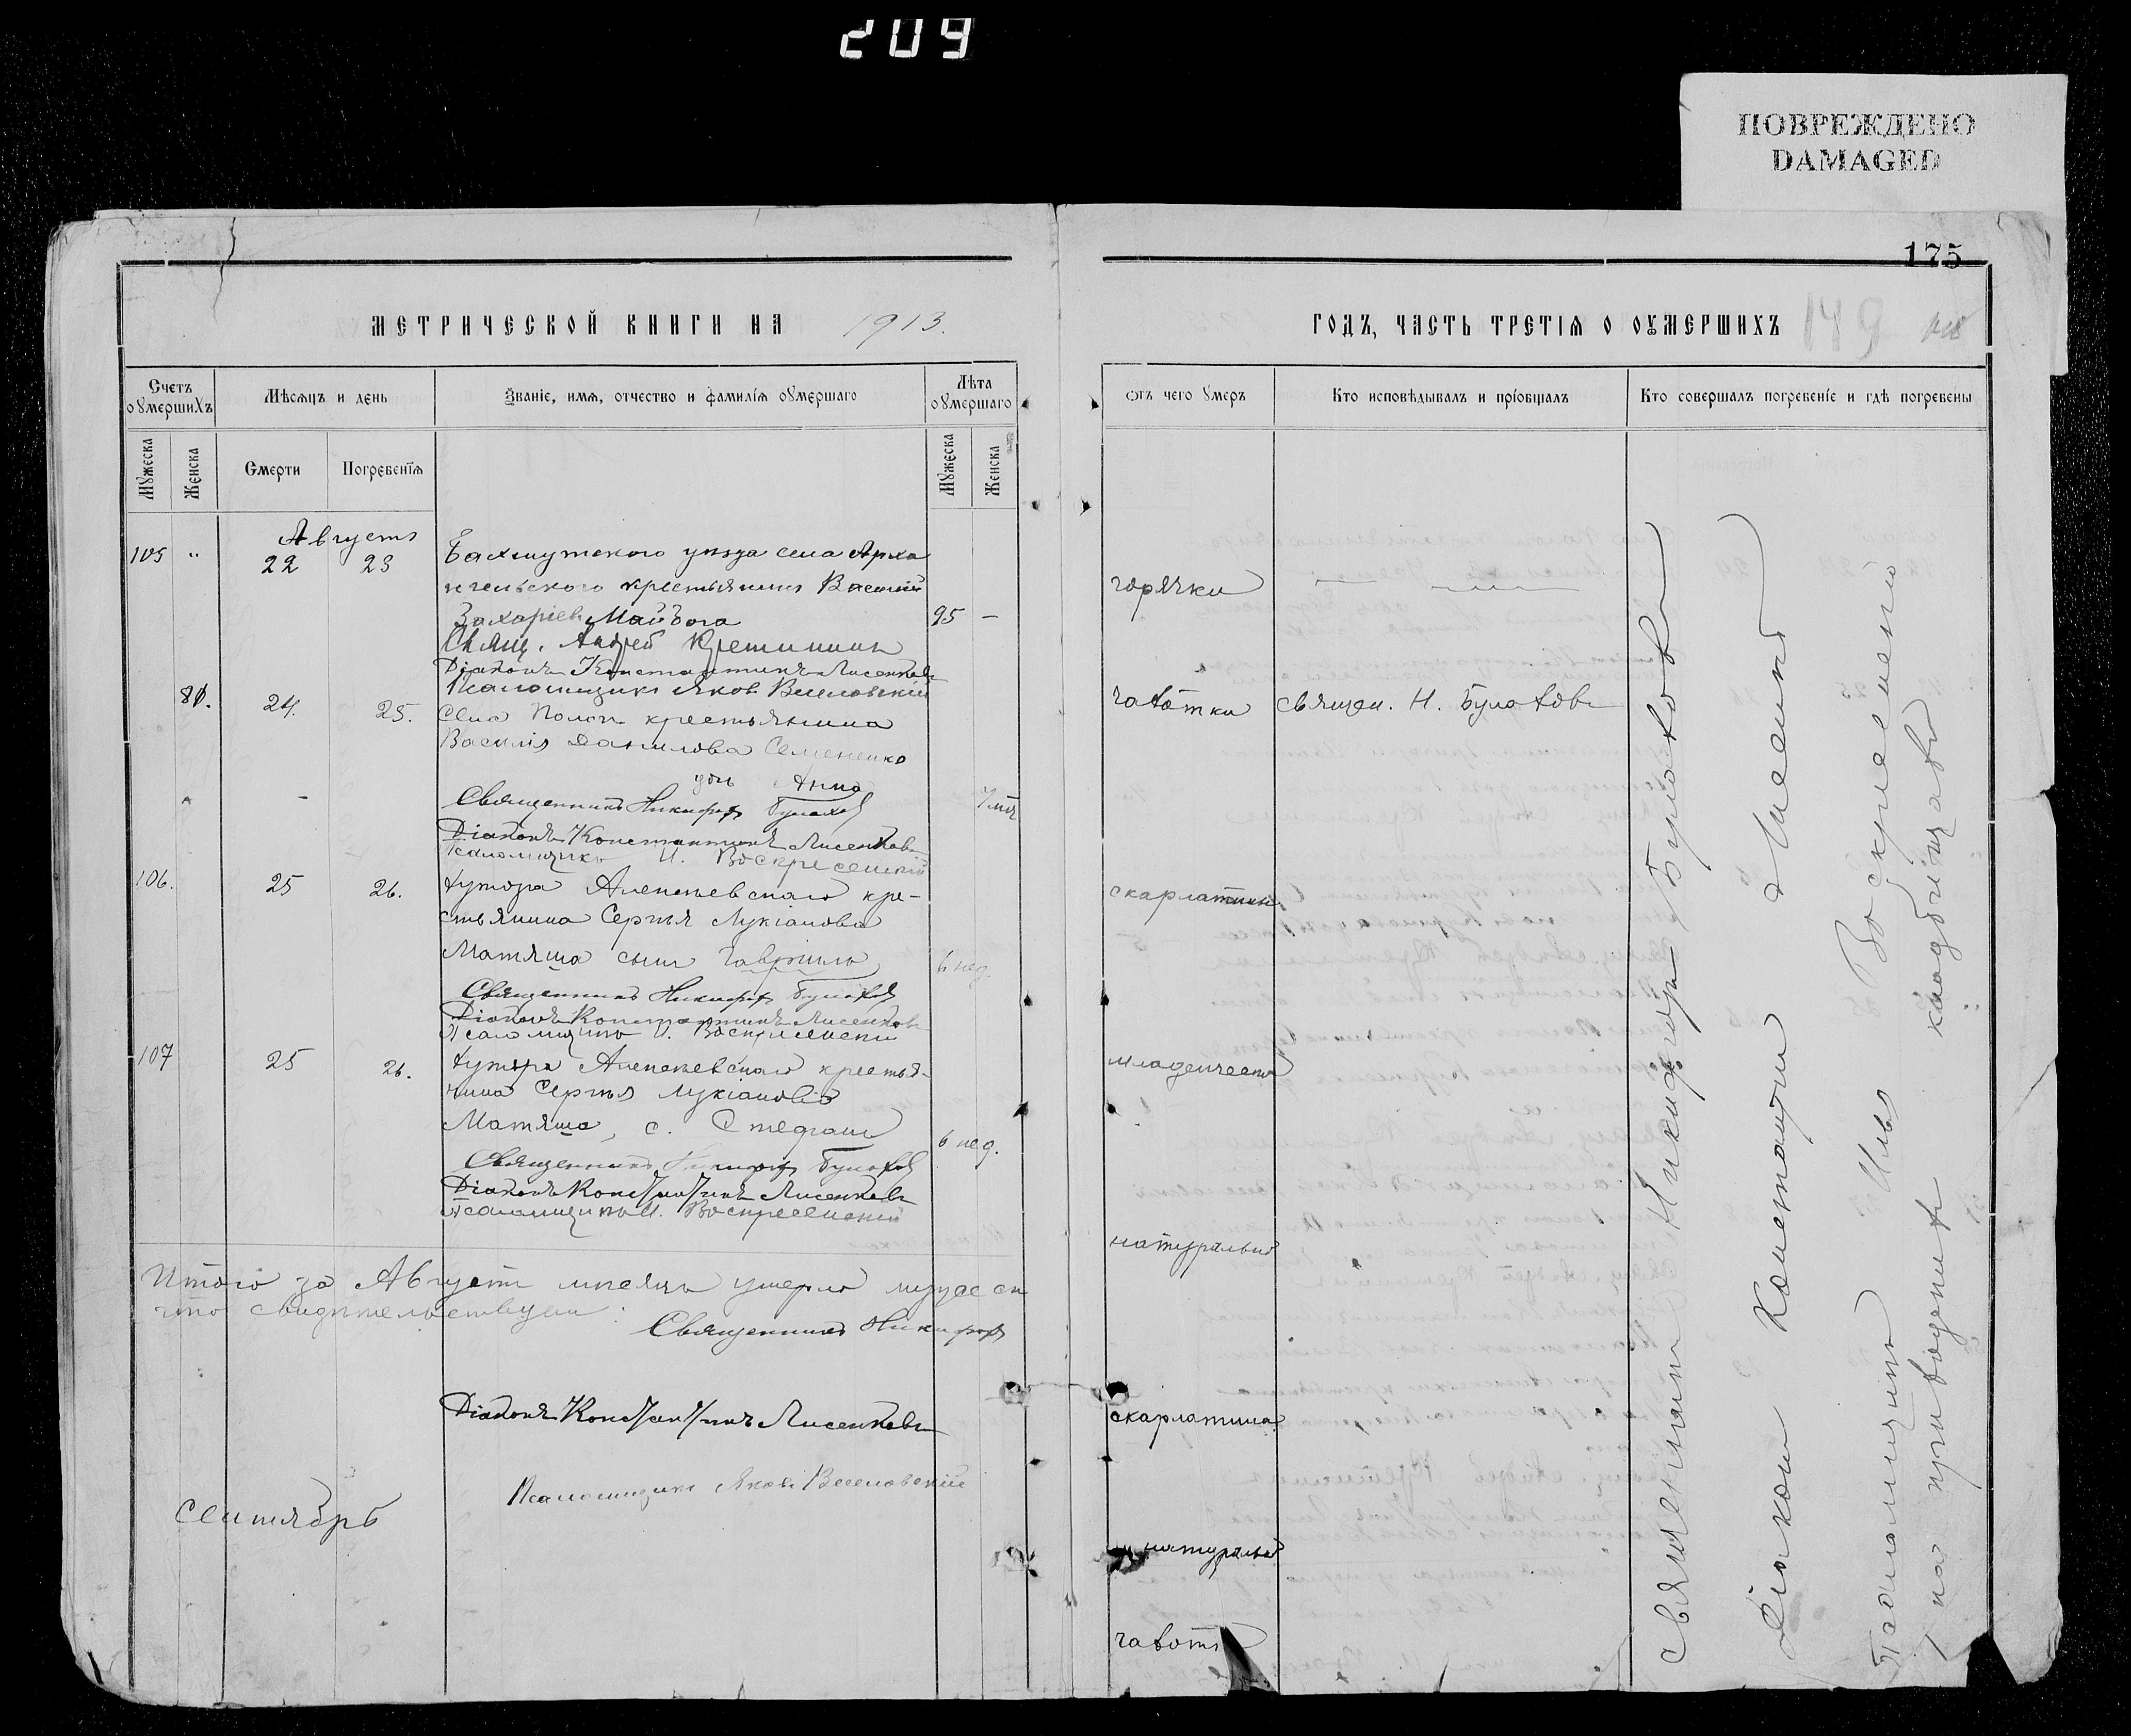 209
ПОВРЕЖДЕНО
DAMAGED
175
МЕТРИЧЕСКОЙ КНИГИ НА 1913.
ГОДЪ, ЧАСТЬ ТРЕТІЯ О ОУМЕРШИХЪ 149
Счетъ оумершихъ
Мѣсяцъ и день
Званіе, имя, отчество и фамилія оумершаго
Лѣта оумершаго
отъ чего умеръ
Кто исповѣдывалъ и пріобщалъ
Кто совершалъ погребеніе и гдѣ погребены
Мужеска
Женска
Смерти
Погребенія
Мужеска
Женска
Августъ
105 " 22 23 Бахмутскаго уѣзда села Арха
нгельского крестьянинъ Василій
Захаріевъ Майбога 95 –
горячки
Свящ. Андрей Кретининъ
Діаконъ Константинъ Лисенковъ
Псаломщикъ Яковъ Веселовскій
80. 24. 25. Села крестьянина
Василія Данилова Семененко
дочь Анна
чахотки священ. Н. Булаховъ
Священникъ Никифоръ Булаховъ
Діаконъ Константинъ Лисенковъ
Псаломщикъ И. Воскресенскій
106. 25 26. хутора Алексѣевскаго кре-
стьянина Сергѣя Лукіанова
Матяша сынъ Гавріилъ 6 нед.
скарлатины
Священникъ Никифоръ Булаховъ
Діаконъ Константинъ Лисенковъ
Псаломщикъ И. Воскресенскій
107 25 26. хутора Алексѣевскаго крестья-
нина Сергѣя Лукіанова
Матяша, с. Стефанъ 6 нед.
младенческ
Священникъ Никифоръ Булаховъ
Діаконъ Константинъ Лисенковъ
Псаломщикъ И. Воскресенскій
натуральн
Итого за Августъ мѣсяцъ умерло мужеск
что свидѣтельствуемъ:
Священникъ Никифоръ
Діаконъ Константинъ Лисенковъ
скарлатина
Псаломщикъ Яковъ Веселовскій
Сентябрь
натуральн
чахотк
Священникъ Никифоръ Булаховъ
Діаконъ Константинъ
Псаломщикъ Илья Воскресенскій
на приходскомъ кладбищѣ